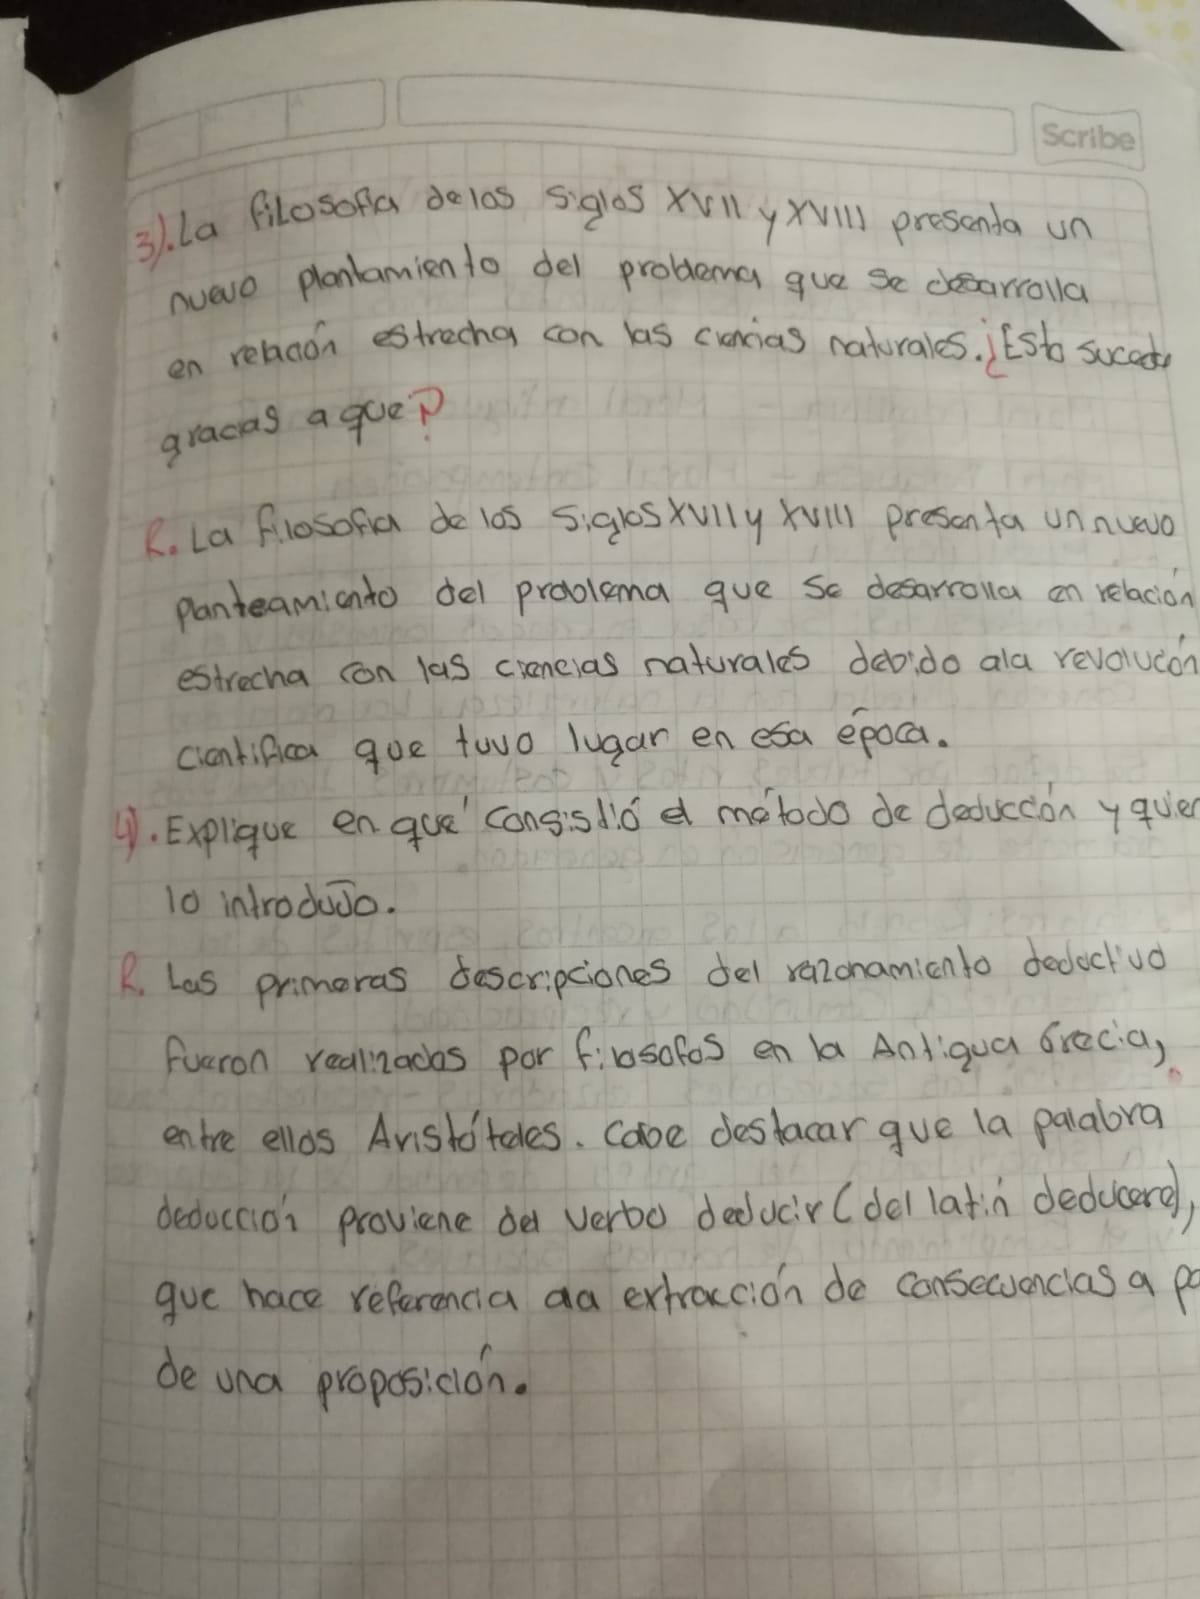 Scribe
3). La filosofía de los siglos XVII y XVIII presenta un
nuevo plantamiento del problema que se desarrolla
en relación estrecha con las ciencias naturales. ¿Esto sucede
gracias a que?
R. La filosofia de los siglos XVII y XVIII presenta un nuevo
planteamiento del problema que se desarrolla en relación
estrecha con las ciencias naturales debido ala revolucón
cientifica que tuvo lugar en esa época.
4). Explique en qué consistió el método de deducción y quien
lo introdujo.
R. Las primeras descripciones del razonamiento deductivo
fueron realizadas por filosofos en la Antigua Grecia,
entre ellos Aristóteles. Cabe destacar que la palabra
deducción proviene del verbo deducir (del latín deducere),
que hace referencia a la extracción de consecuencias a pa
de una proposición.